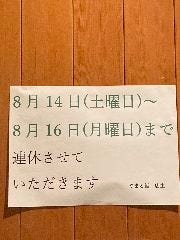 8月14日(土曜日)〜
8月16日(月曜日)まで
連休させて
いただきます
店主